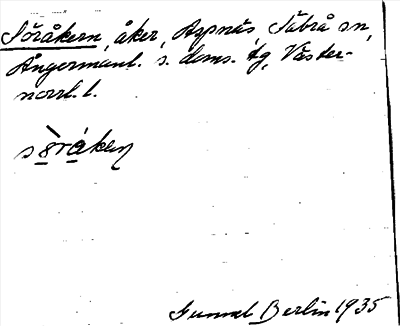 Söråkern, åker, Aspnäs, Säbrå sn,
Ångermanl. s. doms. tg, Väster-
norrl. l.
sò̱rá̱ken
Gunnel Berlin 1935